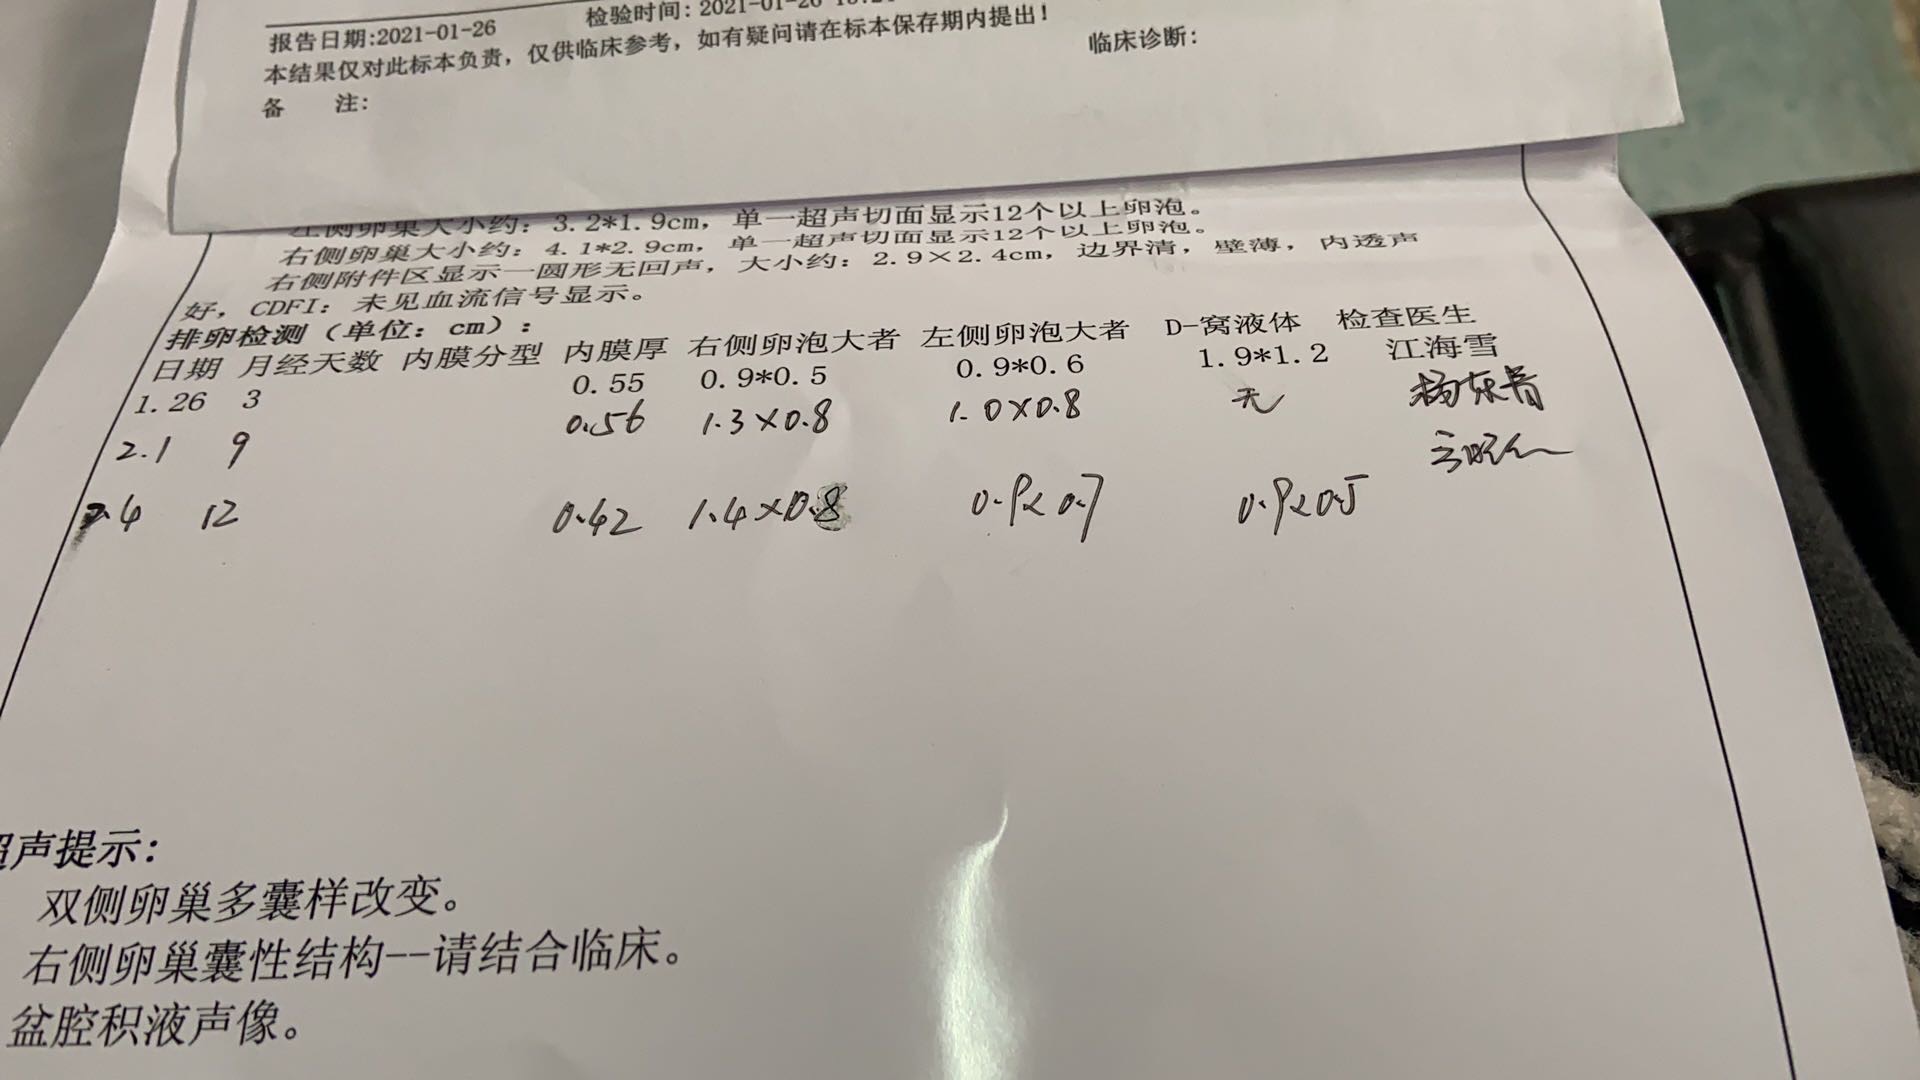 检验时间: 2021-01-26
报告日期:2021-01-26
本结果仅对此标本负责，仅供临床参考，如有疑问请在标本保存期内提出！
临床诊断:
备 注:
左侧卵巢大小约: 3.2*1.9cm, 单一超声切面显示12个以上卵泡。
右侧卵巢大小约: 4.1*2.9cm, 单一超声切面显示12个以上卵泡。
右侧附件区显示一圆形无回声, 大小约: 2.9×2.4cm, 边界清, 壁薄, 内透声
好, CDFI: 未见血流信号显示。
排卵检测(单位: cm):
日期 月经天数 内膜分型 内膜厚 右侧卵泡大者 左侧卵泡大者 D-窝液体 检查医生
1.26 3 0.55 0.9*0.5 0.9*0.6 1.9*1.2 江海雪
2.1 9 0.56 1.3×0.8 1.0×0.8 无
2.4 12 0.42 1.4×0.8 0.9×0.7 0.9×0.5
超声提示:
双侧卵巢多囊样改变。
右侧卵巢囊性结构--请结合临床。
盆腔积液声像。